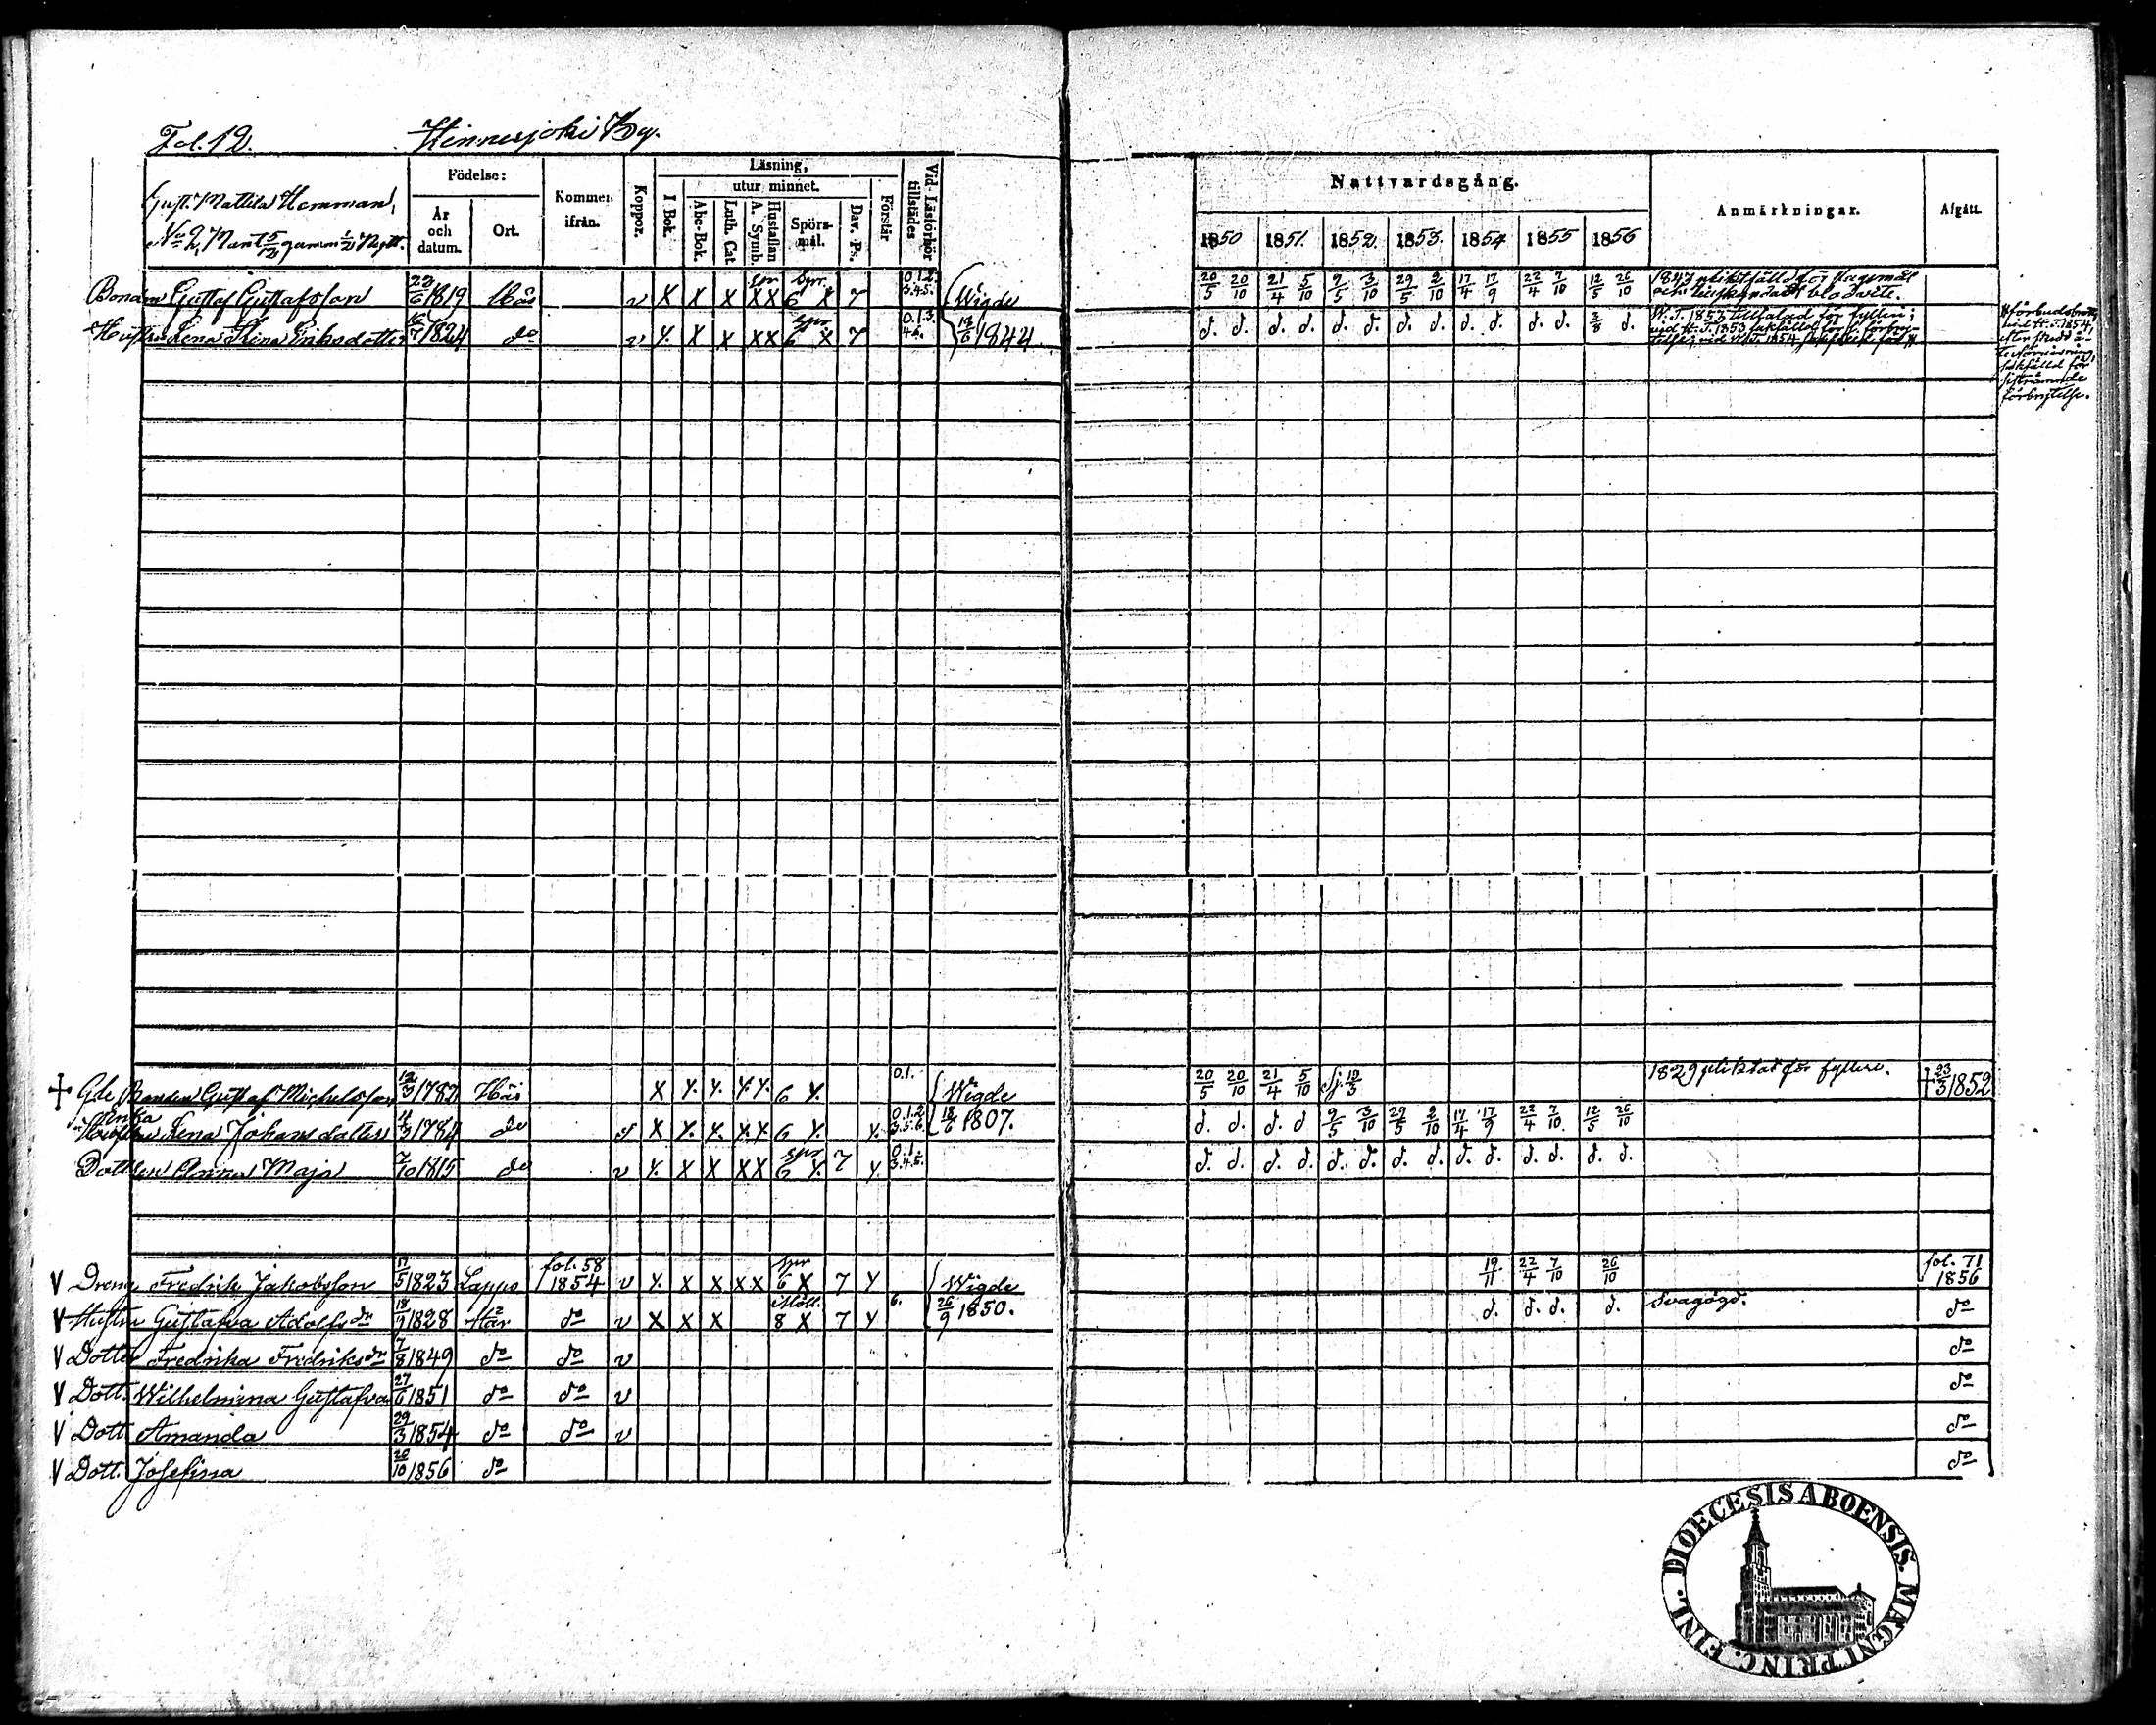 Fol. 12. Hinnerjoki By.
Gust. Mattila Hemman,
No 2, Mant 5/12 gammn 1/2 Nytt.
Födelse:
År och datum.
Ort.
Kommen ifrån.
Koppor.
Läsning,
I Bok.
utur minnet.
Abc-Bok.
Luth. Cat.
A. Symb.
Hustaflan
Spörs-mål.
Dav. Ps.
Förstår
Vid Läsförhör tillstädes
Nattvardsgång.
1850 1851. 1852. 1853. 1854 1855 1856
Anmärkningar.
Afgått.
Bonden Gustaf Gustafsson 23/6 1819 v X X X XX 6 X 7 0.1.2. 3.4.5. Wigde 20/5 20/10 21/4 5/10 9/5 3/10 29/5 2/10 17/4 17/9 22/4 7/10 12/5 26/10 1847 pliktfälld för slagsmål
blodvite.
Hustrun Lena Stina Eriksdotter 16/7 1824 do v X X X XX 6 X 7 0.1.3. 46. 1844 d. d. d. d. d. d. d. d. d. d. d. d. 3/8 d. W. T. 1853 tilltalad för fylleri;
vid H. T. 1853 sakfälld för d. förbry-
telse; vid W. T. 1854
förbudsbrott
vid H. T. 1854,
efter skedd å-
terförvisning,
sakfälld för
sistnämnde
förbrytelse.
+ Gde Bonden Gustaf Michelsson 12/3 1782 X X. X. X.X. 6 X. 0.1. Wigde 20/5 20/10 21/4 5/10 Sj. 19/3 1829 pliktat för fylleri. + 23/3 1852
Enka
Hustrun Lena Johansdotter 11/3 1784 do X X. X. X.X 6 X. X. 0.1.2. 3.5.6. 18/6 1807. d. d. d. d 9/5 3/10 29/5 2/10 17/4 17/9 22/4 7/10. 12/5 26/10
Dottren Anna Maja 7/10 1815 do v X. X X XX spr 6 X. 7 X. 0.1. 3.4.5. d. d. d. d. d. d. d. d. d. d. d. d. d. d.
V Dreng Fredrik Jakobsson 17/5 1823 Lappo fol. 58 1854 v X. X X XX spr 6 X 7 X Wigde 19/11 22/4 7/10 26/10 fol. 71 1856
V Hustru Gustafva Adolfsdr 18/9 1828 Här do v X X X 8 X 7 X 6. 26/9 1850. d. d. d. d. Svagögd. do
V Dotter Fredrika Fredriksdr 7/8 1849 do do v do
V Dott. Wilhelmina Gustafva 27/6 1851 do do v do
V Dott. Amanda 29/3 1854 do do v do
V Dott. Josefina 20/10 1856 do do
FINL. DIOECESIS ABOENSIS. MAGNI PRINC.